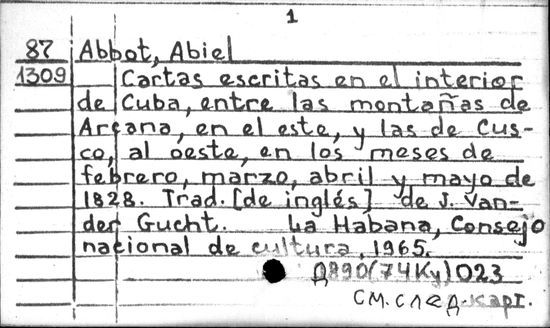 1
87 Abbot, Abiel
1309 Cartas escritas en el interior
de Cuba, entre las montañas de
Arcana, en el este, y las de Cus-
co, al oeste, en los meses de
febrero, marzo, abril y mayo de
1828. Trad. [de inglés] de J. Van-
der Gucht. La Habana, Consejo
nacional de cultura, 1965.
Д890(74Ку)023
см. след. карт.